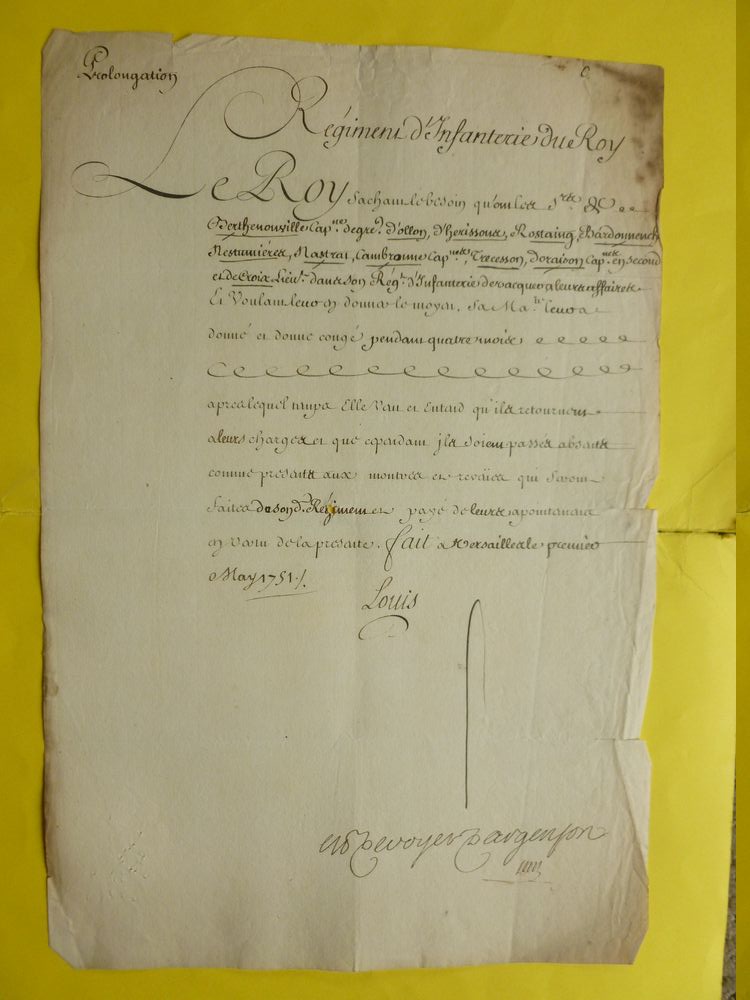 Prolongation
Régiment d'Infanterie du Roy
Le Roy sachant le besoin qu'ont les Srs de
Berthenonville Capne de gres. d'ollon, d'herissons, Rostaing, Bardonnenche
Nestumiéres, Nastrac, Cambronne Capnes, Trecesson, doraison Capnes en second
et de Croix Lieut. dans son Régt. d'Infanterie de vacquer a leurs affaires
Et Voulant leur en donner le moyen, Sa Maté. leur a
donné et donne congé pendant quatre mois
apres lequel temps Elle Veut et Entend qu'ils retournent
a leurs charges et que cependant jls soient passez absents
comme presents aux montres et reveües qui seront
faites de son d. Régiment et payé de leurs apointements
en vertu de la presente. fait a Versailles le premier
May 1751./.
Louis
M de voyer d'argenson